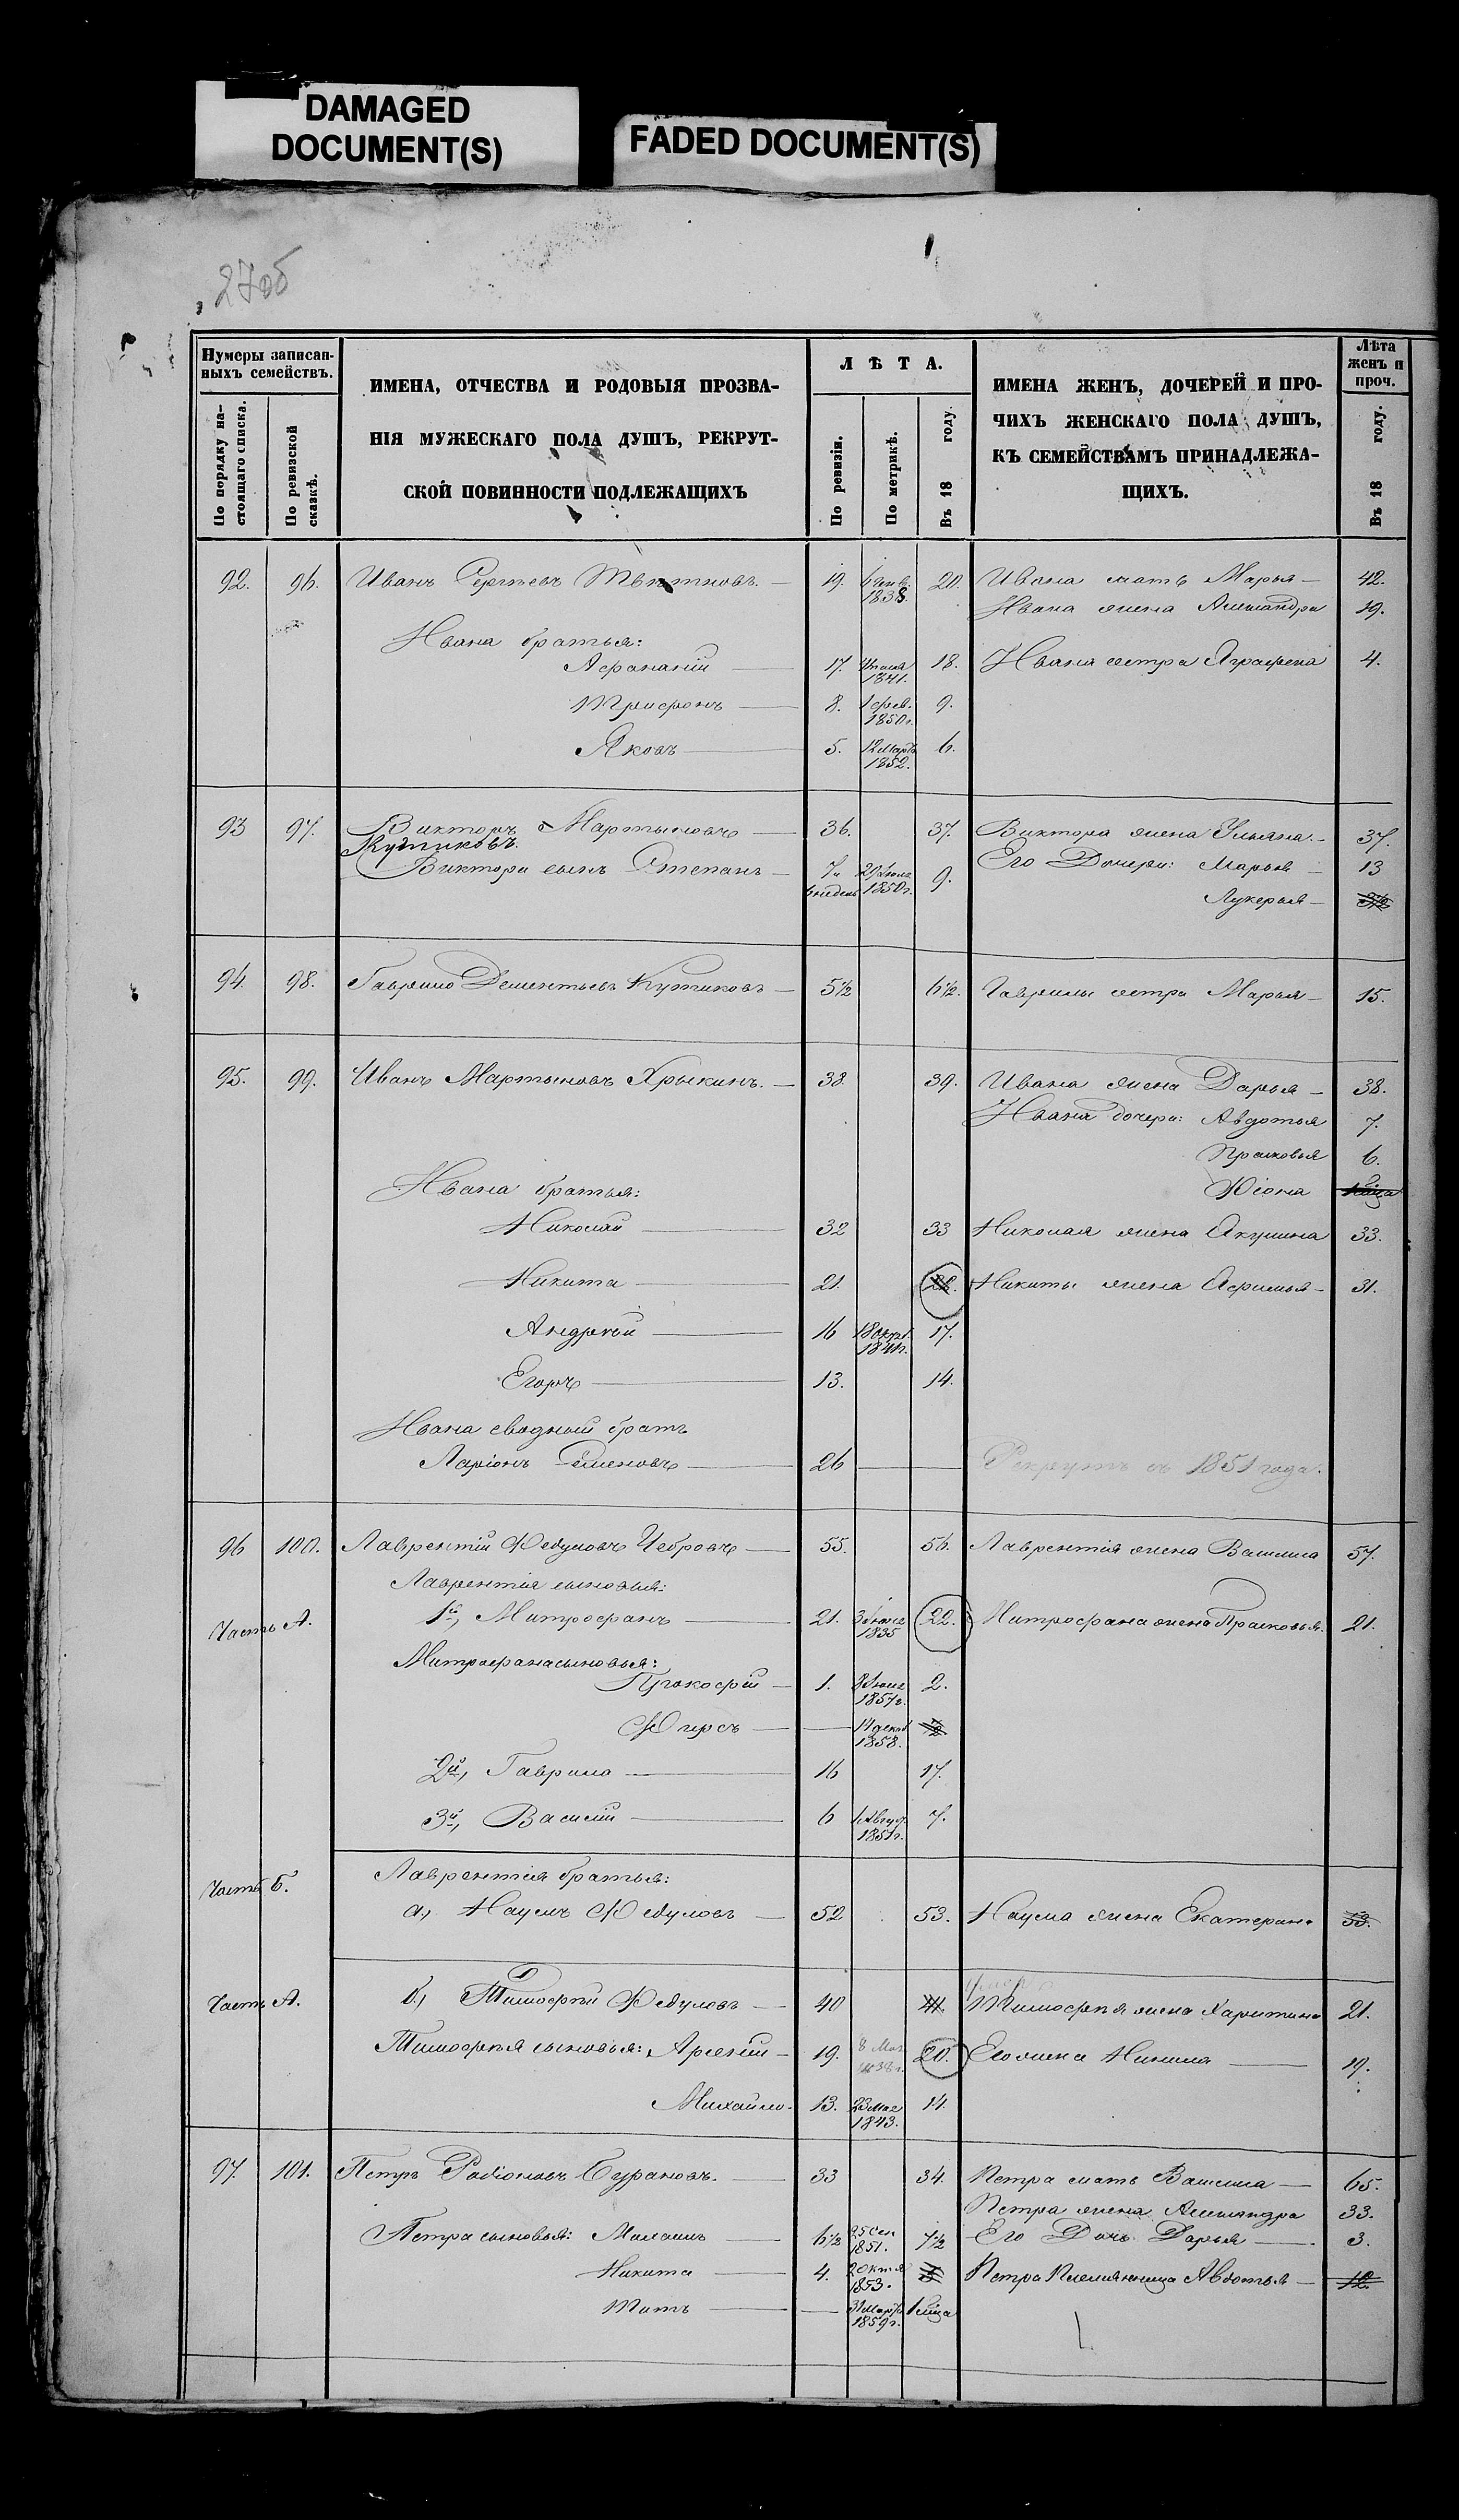 DAMAGED
DOCUMENT(S)
FADED DOCUMENT(S)
27об
Нумеры записан-
ныхъ семействъ.
По порядку на-
стоящаго списка.
По ревизской
сказкѣ.
ИМЕНА, ОТЧЕСТВА И РОДОВЫЯ ПРОЗВА-
НІЯ МУЖЕСКАГО ПОЛА ДУШЪ, РЕКРУТ-
СКОЙ ПОВИННОСТИ ПОДЛЕЖАЩИХЪ
ЛѢТА.
По ревизіи.
По метрикѣ.
Въ 18 году.
ИМЕНА ЖЕНЪ, ДОЧЕРЕЙ И ПРО-
ЧИХЪ ЖЕНСКАГО ПОЛА ДУШЪ,
КЪ СЕМЕЙСТВАМЪ ПРИНАДЛЕЖА-
ЩИХЪ.
Лѣта
женъ и
проч.
Въ 18 году.
92. 96. Иванъ Сергѣевъ — 19. 1838. 20. Ивана мать Марья — 42.
Ивана жена Александра 19.
Ивана братья:
Афанасій — 17. 1841. 18. Ивана сестра Аграфена 4.
Трифонъ — 8. 1 фев. 1850г. 9.
Яковъ — 5. 12 Марта 1852. 6.
93 97. Викторъ Мартыновъ — 36. 37. Виктора жена Ульяна — 37.
Кутиковъ.
Виктора сынъ Степанъ — 7 и недель 29 Июля 1850г. 9. Его Дочери: Марья — 13
Лукерья — 3½
94. 98. Гаврило Дементьевъ Кутиковъ — 5½ 6½. Гаврилы сестра Марья — 15.
95. 99. Иванъ Мартыновъ Хрыкинъ. — 38. 39. Ивана жена Дарья — 38.
Ивана дочери: Авдотья 7.
Прасковья 6.
Ивана братья:
Николай — 32 33 Николая жена Акулина 33.
Никита — 21. 22. Никиты жена Афимья — 31.
Андрей — 16 18 окт. 1841г. 17.
Егоръ — 13. 14.
Ивана сводный братъ
Ларіонъ Семеновъ — 26 — Рекрутъ съ 1851 года.
96 100. Лаврентій Федуловъ Чебровъ — 55. 56. Лаврентія жена Васиlиса 57.
Лаврентія сыновья:
Часть А. 1й, Митрофанъ — 21. 3 Июня 1835 22. Митрофана жена Прасковья. 21.
Митрофана сыновья:
Прокофій — 1. 8 Июля 1857г. 2.
Фирсъ — 14 декаб 1858. ½
2й, Гаврило — 16 17.
3й, Василій — 6 1 Авгус. 1851г. 7.
Часть Б. Лаврентія братья:
а, Наумъ Федуловъ — 52 53. Наума жена Екатерина 53.
Часть А. б, Тимофей Федуловъ — 40 41. Тимофея жена Харитина 21.
Тимофея сыновья: Арсеній — 19. 8 Мая 1838г. 20. Его жена — 19.
Михайло — 13. 23 Мая 1843. 14.
97. 101. Петръ Родіоновъ Бурановъ. — 33 34. Петра мать Василиса — 65.
Петра жена Александра 33.
Петра сыновья: — 6½ 25 Сен 1851. 7½ Его Дочь Дарья — 3.
Никита — 4. 2 Октя 1853. 5 Петра племянница Авдотья — 12.
Титъ — 31 Марта 1859г.